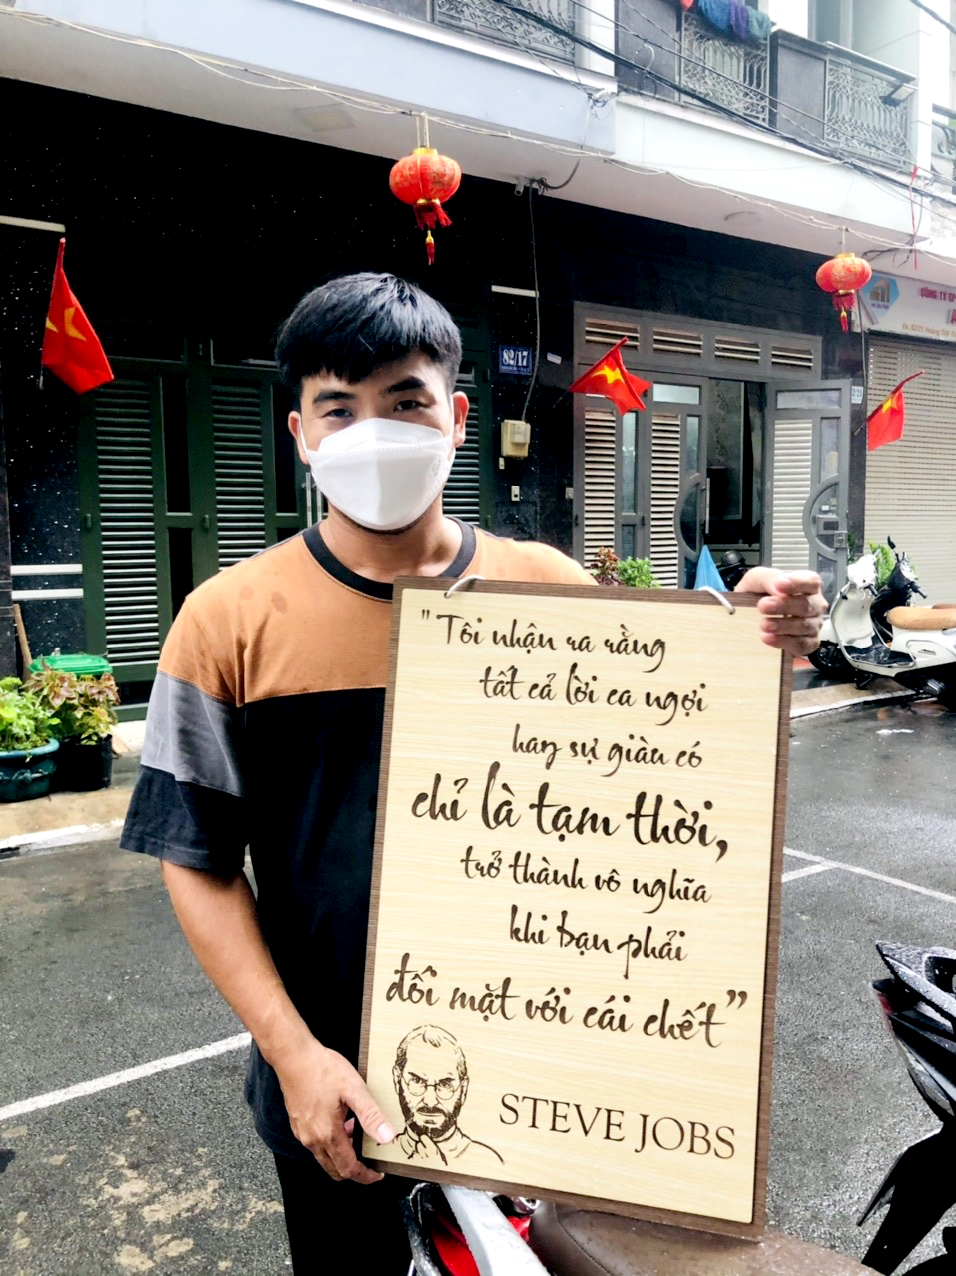 CÔNG TY
Đc: 82/21 Hoàng
82/17
"Tôi nhận ra rằng
tất cả lời ca ngợi
hay sự giàu có
chỉ là tạm thời,
trở thành vô nghĩa
khi bạn phải
đối mặt với cái chết”
STEVE JOBS